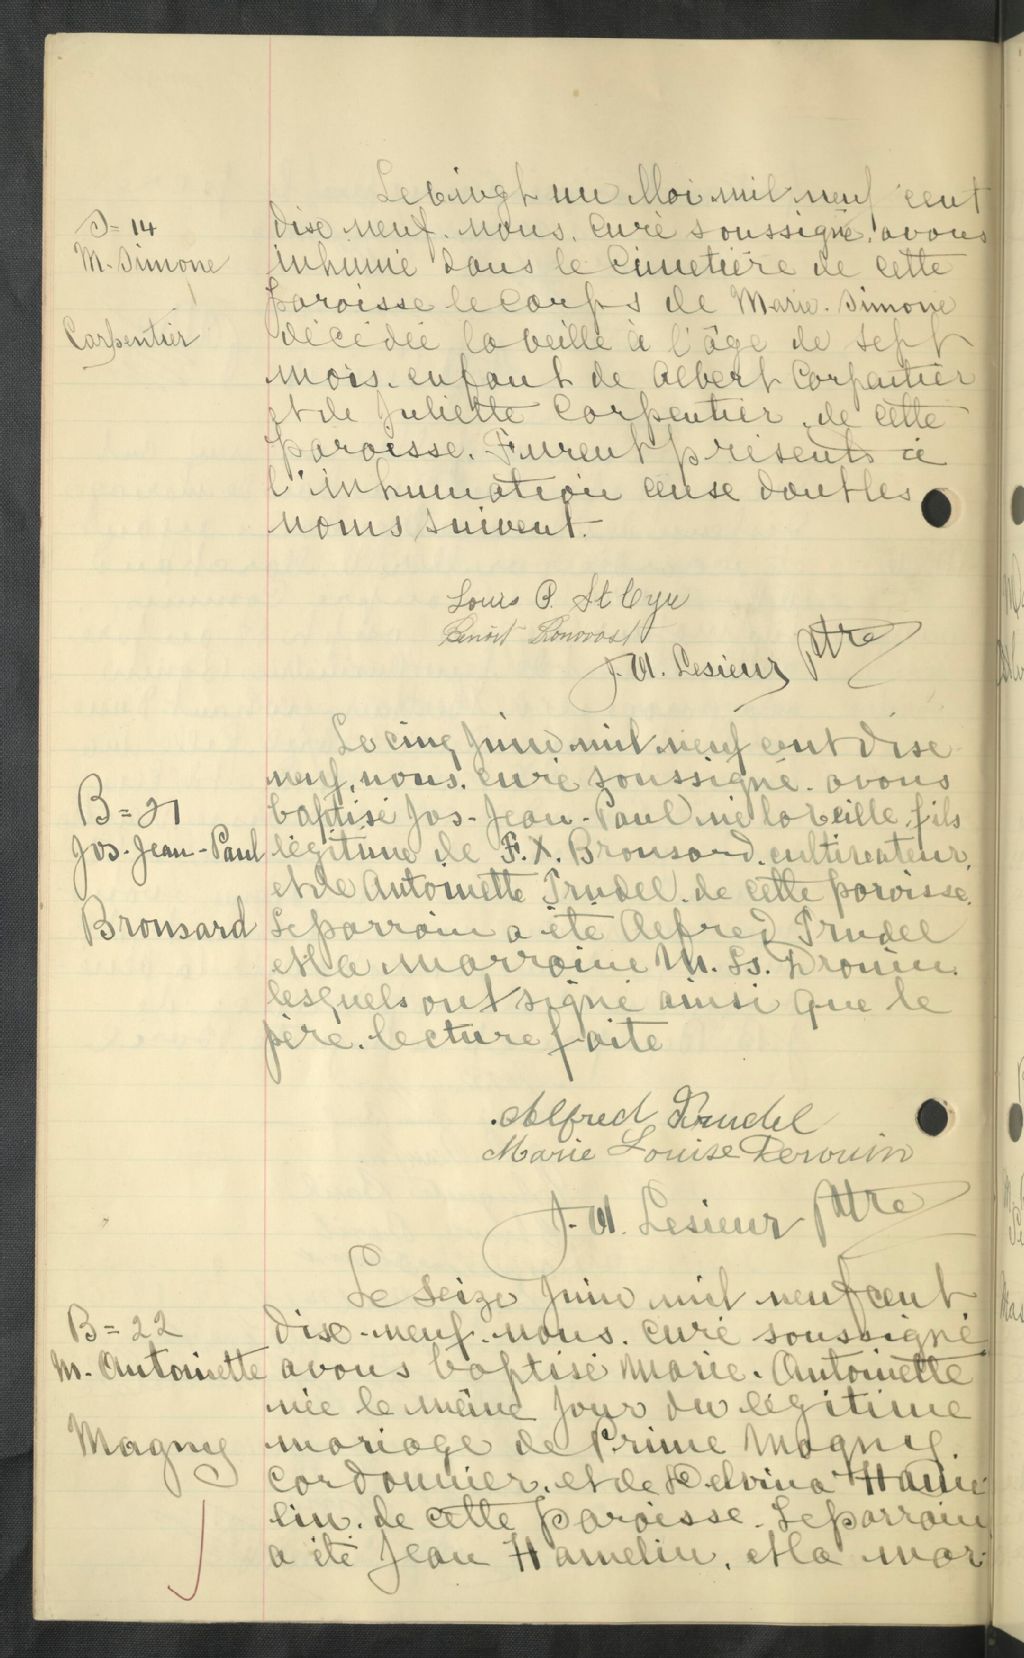 Le vingt un Mai mil neuf cent
S= 14
dix neuf. nous. curé soussigné, avons
M. Simone
inhumé dans le Cimetière de cette
paroisse le corps de Marie. Simone
Carpentier
décédée la veille à l'âge de sept
mois. enfant de Albert Carpentier
et de Juliette Carpentier. de cette
paroisse. Furent présents à
l'inhumation ceux dont les
noms suivent.
Louis P. St Cyr
Benoit
J. A. Lesieur Ptre
Le cinq Juin mil neuf cent dix
neuf, nous. curé soussigné. avons
B=21
baptisé Jos- Jean- Paul né la veille, fils
Jos- Jean- Paul
légitime de F. X. Bronsard. cultivateur.
et de Antoinette Trudel. de cette paroisse.
Bronsard
Le parrain a été Alfred Trudel
et la marraine M. Ls. Drouin.
lesquels ont signé ainsi que le
père. lecture faite
Alfred Trudel
Marie Louise Derouin
J. A. Lesieur Ptre
Le seize Juin mil neuf cent
B= 22
dix-neuf. nous. curé soussigné
M. Antoinette
avons baptisé Marie. Antoinette
née le même jour du légitime
Magny
mariage de Prime Magny.
cordonnier. et de Delvina Hame
lin. de cette paroisse. Le parrain
a été Jean Hamelin. et la mar-